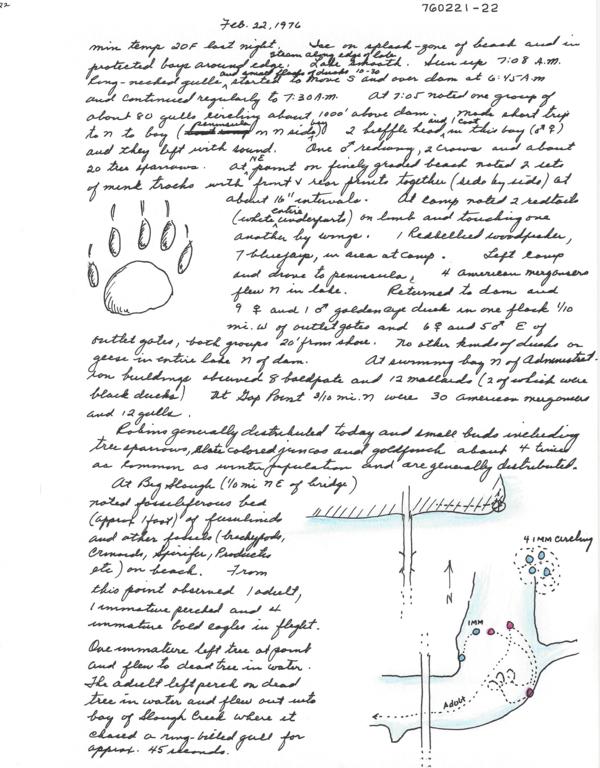 22
760221-22
Feb. 22, 1976
min temp 20F last night. Ice on splash-zone of beach and in
steam along edge of lake
protected bays around edge. Lake smooth. Sun up 7:08 A.M.
and small flocks of ducks 10-30
Long-necked gulls, started to move S and over dam at 6:45 A.M
and continued regularly to 7:30 A.M. At 7:05 noted one group of
about 80 gulls circling about 1000' above dam. Made short trip
to N to bay (peninsula on N side) 2 bufflehead and 1 coot in this bay (♂ ♀)
and they left with sound. One ♂ redwing, 2 crows and about
20 tree sparrows. At NE point on finely graded beach noted 2 sets
of mink tracks with front & rear prints together (side by side) at
about 16" intervals. At camp noted 2 redtails
(white entire underparts) on limb and touching one
another by wings. 1 Redbellied woodpecker,
7 bluejays, in area at camp. Left camp
and drove to peninsula, 4 american mergansers
flew N in lake. Returned to dam and
9 ♀ and 1 ♂ goldeneye duck in one flock 1/10
mi. W of outlet gates and 6 ♀ and 5 ♂ E of
outlet gates, both groups 20' from shore. No other kinds of ducks or
geese in entire lake N of dam. At swimming bay N of Administrat-
ion buildings observed 8 baldpate and 12 mallards (2 of which were
black ducks) At Gap Point 3/10 mi. N were 30 American mergansers
and 12 gulls.
Robins generally distributed today and small birds including
tree sparrows, slate colored juncos and goldfinch about 4 times
as common as winter population and are generally distributed.
At Big Slough (1/10 mi NE of bridge)
noted fossiliferous bed
(approx 1 foot) of fusulinids
and other fossils (brachypods,
Crinoids, Spirifer, Productus
etc) on beach. From
this point observed 1 adult,
1 immature perched and 4
immature bald eagles in flight.
One immature left tree at point
and flew to dead tree in water.
The adult left perch on dead
tree in water and flew out into
bay of Slough Creek where it
chased a ring-billed gull for
approx. 45 seconds.
4 IMM circling
N
IMM
Adult